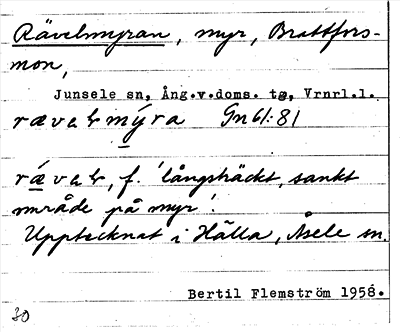 Rävelmyran, myr, Brattfors-
mon,
Junsele sn, Ång.v.doms. tg, Vrnrl.l.
rævelmýra Gn61:81
rævel, f. 'långsträckt, sankt
område på myr'.
Upptecknat i Hälla, Åsele sn.
Bertil Flemström 1958.
30